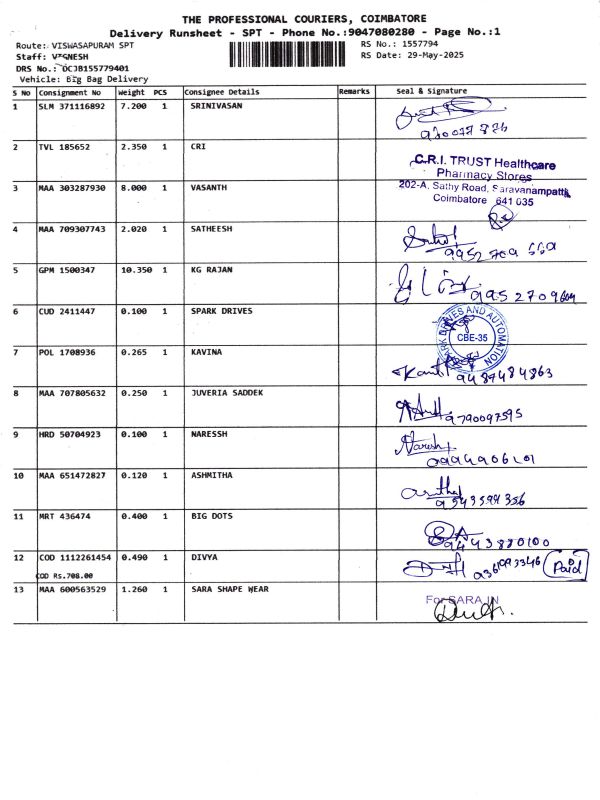 THE PROFESSIONAL COURIERS, COIMBATORE
Delivery Runsheet - SPT - Phone No.:9047080280 - Page No.:1
Route: VISWASAPURAM SPT RS No.: 1557794
Staff: VIGNESH RS Date: 29-May-2025
DRS No.: DCJB155779401
Vehicle: Big Bag Delivery
S No Consignment No Weight PCS Consignee Details Remarks Seal & Signature
1 SLM 371116892 7.200 1 SRINIVASAN
2 TVL 185652 2.350 1 CRI
C.R.I. TRUST Healthcare
Pharmacy Stores
3 MAA 303287930 8.000 1 VASANTH
202-A, Sathy Road, Saravanampatti,
Coimbatore 641 035
4 MAA 709307743 2.020 1 SATHEESH
9952709 669
5 GPM 1500347 10.350 1 KG RAJAN
9952709669
6 CUD 2411447 0.100 1 SPARK DRIVES
SPARK DRIVES AND AUTOMATION
CBE-35
7 POL 1708936 0.265 1 KAVINA
9487484863
8 MAA 707805632 0.250 1 JUVERIA SADDEK
9790097595
9 HRD 50704923 0.100 1 NARESSH
Naresh
10 MAA 651472827 0.120 1 ASHMITHA
11 MRT 436474 0.400 1 BIG DOTS
9443880100
12 COD 1112261454 0.490 1 DIVYA
9361993346 Paid
COD Rs.708.00
13 MAA 600563529 1.260 1 SARA SHAPE WEAR
For SARA IN